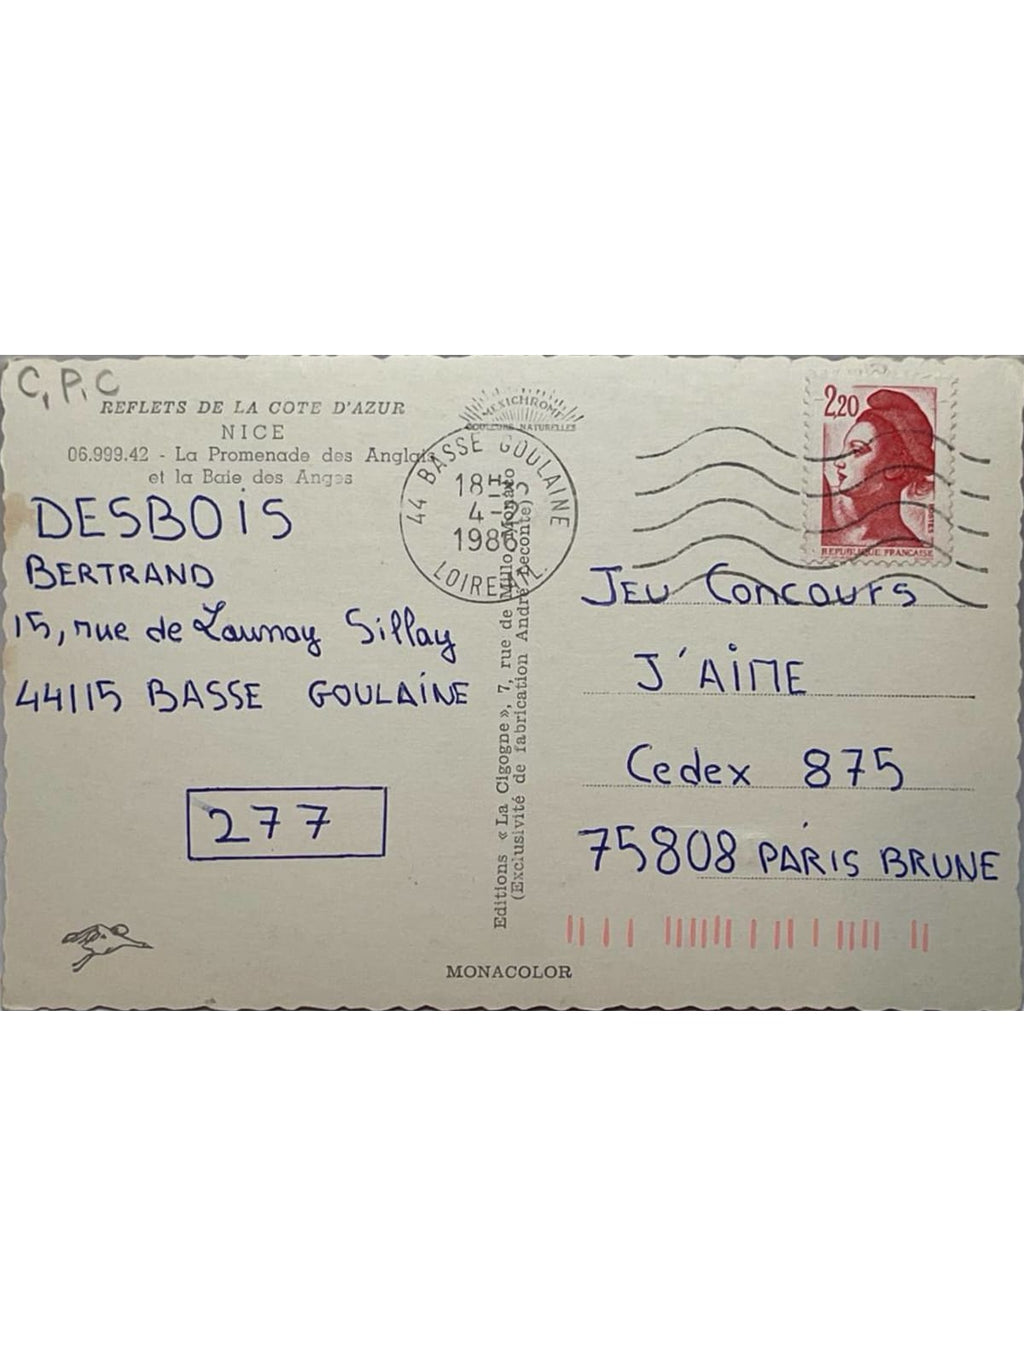 C.P.C
REFLETS DE LA COTE D'AZUR
NICE
06.999.42 - La Promenade des Anglais
et la Baie des Anges
DESBOIS
BERTRAND
15, rue de Launay Sillay
44115 BASSE GOULAINE
277
MEXICHROME
COULEURS NATURELLES
44 BASSE GOULAINE
18H
4-
1986
LOIRE
Editions « La Cigogne », 7, rue de Millo, Monaco
(Exclusivité de fabrication André Leconte)
MONACOLOR
2,20
POSTES
REPUBLIQUE FRANCAISE
JEU CONCOURS
J'AIME
Cedex 875
75808 PARIS BRUNE